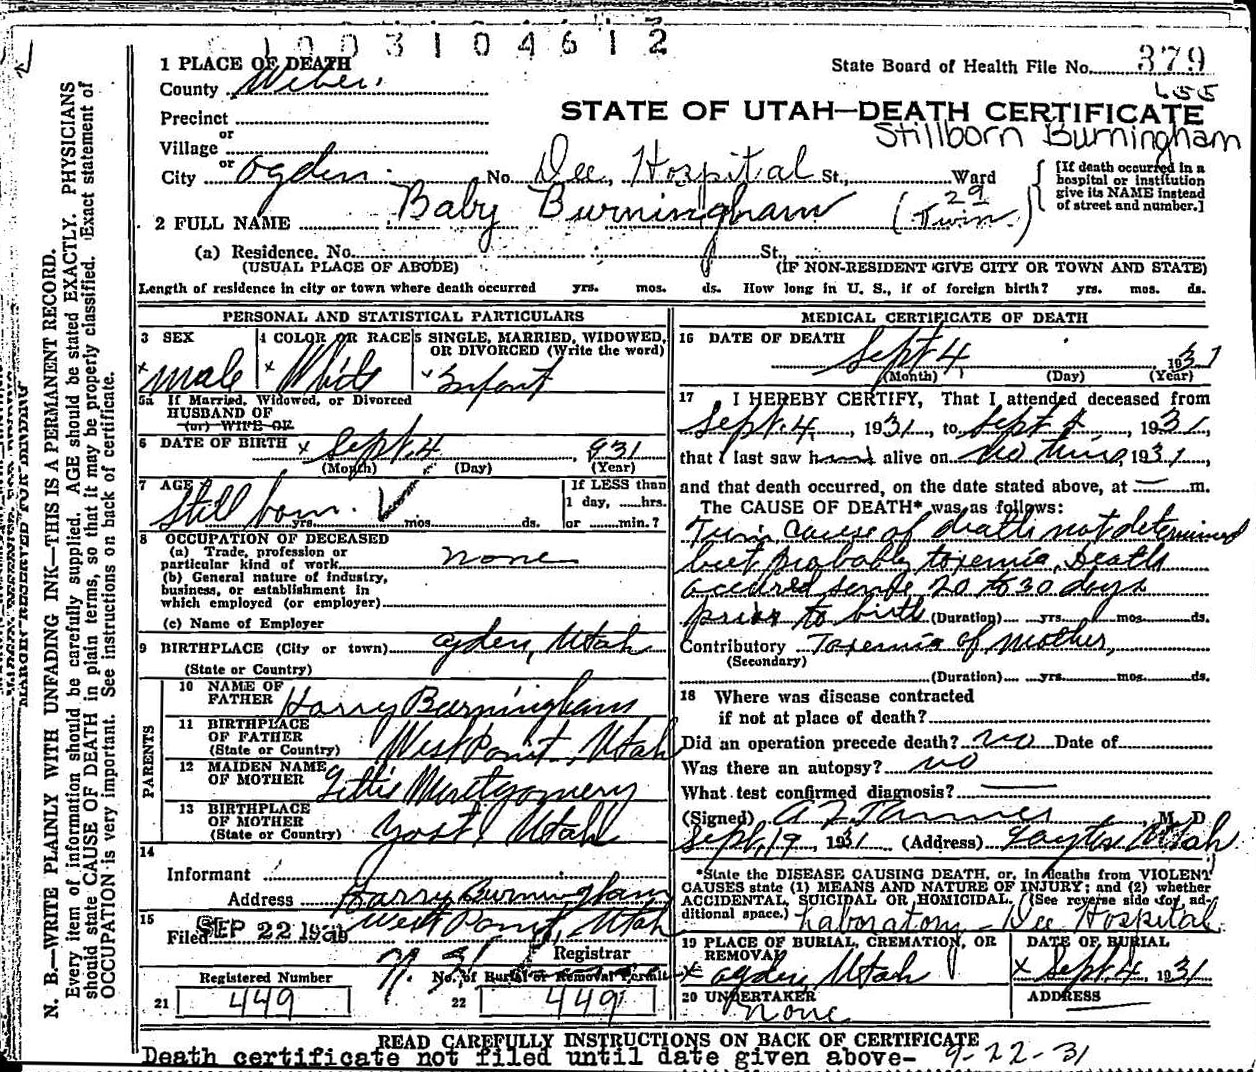 1003104612
1 PLACE OF DEATH
State Board of Health File No. 379
County Weber
655
STATE OF UTAH—DEATH CERTIFICATE
Precinct
Stillborn Burningham
or
Village
or
City Ogden No. Dee Hospital St., Ward
[If death occurred in a hospital or institution give its NAME instead of street and number.]
2 FULL NAME Baby Burningham (Twin)
(a) Residence. No. St.,
(USUAL PLACE OF ABODE) (IF NON-RESIDENT GIVE CITY OR TOWN AND STATE)
Length of residence in city or town where death occurred yrs. mos. ds. How long in U. S., if of foreign birth? yrs. mos. ds.
PERSONAL AND STATISTICAL PARTICULARS
3 SEX
male
4 COLOR OR RACE
White
5 SINGLE, MARRIED, WIDOWED, OR DIVORCED (Write the word)
Infant
5a If Married, Widowed, or Divorced
HUSBAND OF
(or) WIFE OF
6 DATE OF BIRTH Sept. 4, 931
(Month) (Day) (Year)
7 AGE
Still born.
yrs. mos. ds.
If LESS than
1 day, hrs.
or min.?
8 OCCUPATION OF DECEASED
(a) Trade, profession or
particular kind of work none
(b) General nature of industry,
business, or establishment in
which employed (or employer)
(c) Name of Employer
9 BIRTHPLACE (City or town) Ogden, Utah
(State or Country)
PARENTS
10 NAME OF FATHER Harry Burningham
11 BIRTHPLACE OF FATHER (State or Country) West Point, Utah
12 MAIDEN NAME OF MOTHER Lettie Montgomery
13 BIRTHPLACE OF MOTHER (State or Country) Yost, Utah
14
Informant
Address Harry Burningham
West Point, Utah
15
Filed SEP 22 1931
Registrar
Registered Number
No. of Burial or Removal Permit
21 449
22 449
MEDICAL CERTIFICATE OF DEATH
16 DATE OF DEATH
Sept 4 1931
(Month) (Day) (Year)
17 I HEREBY CERTIFY, That I attended deceased from
Sept. 4, 1931, to Sept 4, 1931,
that I last saw h alive on no time, 1931,
and that death occurred, on the date stated above, at — m.
The CAUSE OF DEATH* was as follows:
Twin cause of death not determined
but probably toxemia. Death
occured some 20 to 30 days
prior to birth (Duration) yrs. mos. ds.
Contributory Toxemia of mother,
(Secondary)
(Duration) yrs. mos. ds.
18 Where was disease contracted
if not at place of death?
Did an operation precede death? no Date of
Was there an autopsy? no
What test confirmed diagnosis? —
(Signed) M. D
Sept, 19, 1931 (Address) Layton Utah
*State the DISEASE CAUSING DEATH, or, in deaths from VIOLENT
CAUSES state (1) MEANS AND NATURE OF INJURY; and (2) whether
ACCIDENTAL, SUICIDAL OR HOMICIDAL. (See reverse side for ad-
ditional space.) Laboratory - Dee Hospital
19 PLACE OF BURIAL, CREMATION, OR REMOVAL
Ogden, Utah
DATE OF BURIAL
Sept. 4 1931
20 UNDERTAKER
none
ADDRESS
READ CAREFULLY INSTRUCTIONS ON BACK OF CERTIFICATE
Death certificate not filed until date given above- 9-22-31
MARGIN RESERVED FOR BINDING
N. B.—WRITE PLAINLY WITH UNFADING INK—THIS IS A PERMANENT RECORD.
Every item of information should be carefully supplied. AGE should be stated EXACTLY. PHYSICIANS
should state CAUSE OF DEATH in plain terms, so that it may be properly classified. Exact statement of
OCCUPATION is very important. See instructions on back of certificate.